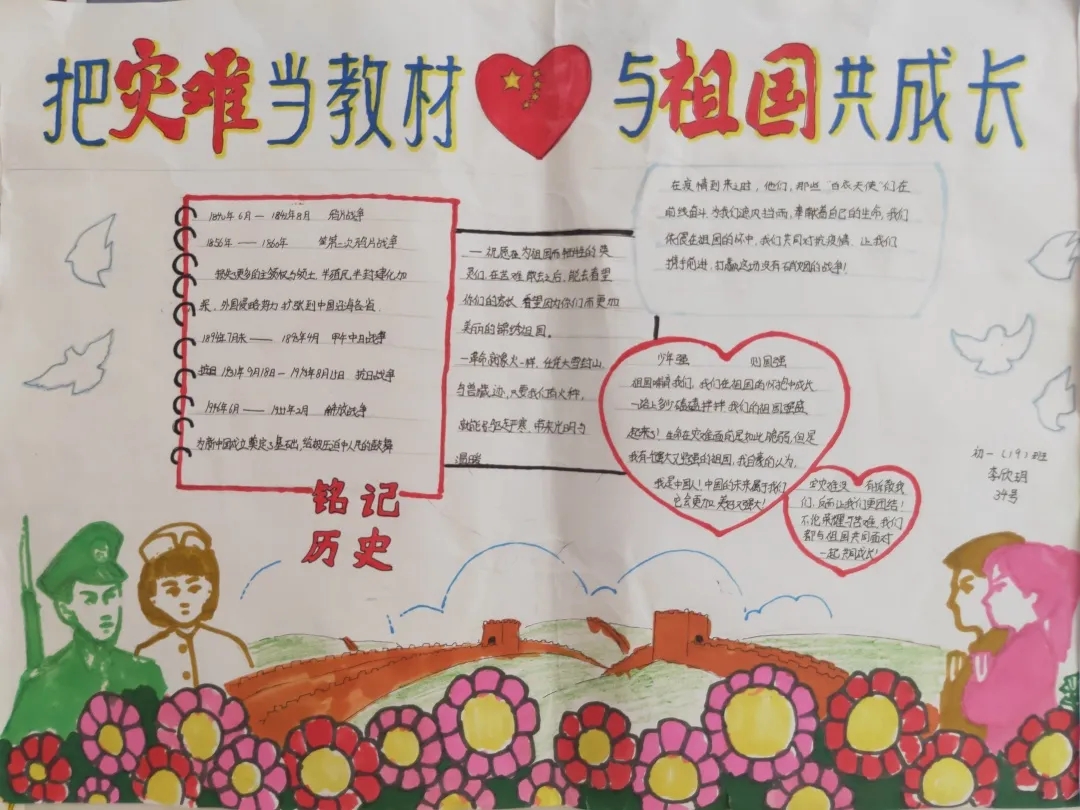 把灾难当教材 与祖国共成长
1840年6月—1842年8月 鸦片战争
1856年——1860年 第二次鸦片战争
损失更多的主领权与领土,半殖民半封建化加
采,外国侵略势力扩张到中国沿海各省
1894年7月末—— 1895年4月 甲午中日战争
抗日1931年9月18日- 抗日战争
1946年6月—— 解放战争
为新中国成立奠定了基础,给被压迫中人民的鼓舞
铭记
历史
—祝愿在为祖国而牺牲的英
灵们,在苦难散去之后,能去看望
你们的家长,看望因为你们而更加
美丽的锦绣祖国。
—革命就象火一样,任凭大雪封山,
鸟兽藏迹,只要我们有火种,
就能驱赶严寒,带来光明与
温暖
在疫情到来之时,他们,那些"白衣天使"们在
前线奋斗,为我们遮风挡雨,奉献着自己的生命,我们
依偎在祖国的怀中,我们共同对抗疫情,让我们
携手前进,打赢这场没有硝烟的战争!
少年强 则国强
祖国哺育我们,我们在祖国的怀抱中成长
一路上多少磕磕拌拌,我们的祖国强盛
起来了!生命在灾难面前是如此脆弱,但是
我有个强大又坚强的祖国,我自豪的认为,
我是中国人!中国的未来属于我们
它会更加美好又强大!
灾难没有拆散我
们,反而让我们更团结!
不论荣耀与苦难,我们
都与祖国共同面对
一起共同成长!
初一(19)班
李欣玥
34号